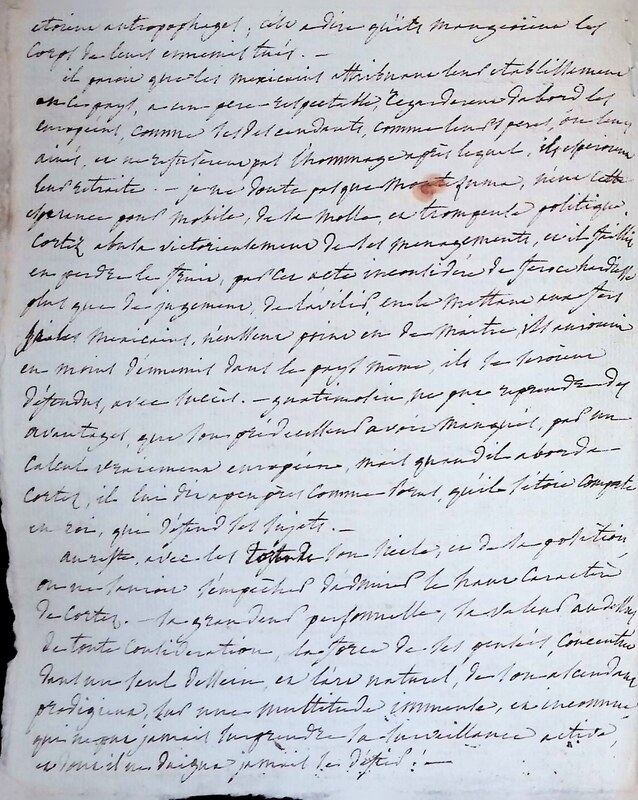 étoient antropophages, c'est a dire qu'ils mangeoient les
corps de leurs ennemis tués. —
il paroit que les mexicains attribuant leur etablissement
en ce pays, a un pere respectable, regarderent d'abord les
européens, comme ses descendants, comme leurs peres, ou leurs
ainés, et ne refuserent pas l'hommage après lequel, ils esperoient
leur retraite. — je ne doute pas que Montezuma, n'eut cette
esperance pour mobile, de sa molle, et trompeuse politique.
Cortez abusa victorieusement de ses menagements, et il faillit
en perdre le fruit, par cet acte inconsidéré de feroce hardiesse
plus que de jugement, de l'avilir, en le mettant aux fers
les Mexicains, n'eussent point eu de Maitre, ils auroient
eu moins d'ennemis dans le pays même, ils se seroient
défendus, avec succès. — guatimosin, ne put reprendre des
avantages, que son prédecesseur avoit manqués, par un
calcul vraiement européen, mais quand il aborda
Cortez, il lui dit apeuprès comme Porus, qu'il s'étoit comporté
en roi, qui défend ses sujets. —
au reste, avec les de son siècle, et de sa position
on ne sauroit s'empêcher d'admirer le haut caractère
de Cortez. — sa grandeur personnelle, sa valeur au dessus
de toute considération, la force de ses pensées concentrée
dans un seul dessein et l'art naturel, de son ascendant
prodigieux, sur une multitude commune, et inconnue
qui ne put jamais surprendre sa surveillance active,
et dont il ne daigna jamais se défier! —